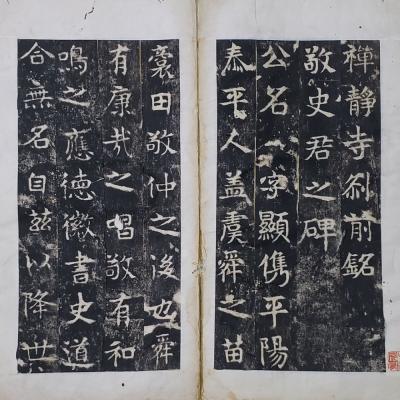 禅静寺刹前銘
敬史君之碑
公名一字顯儁平陽
泰平人蓋虞舜之苗
裔田敬仲之後也舜
有康哉之唱敬有和
鳴之應德徽書史道
合無名自茲以降世